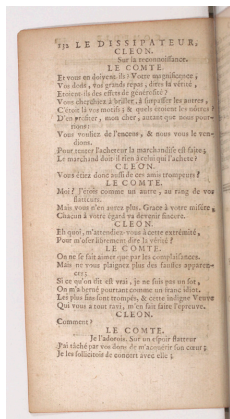 132 LE DISSIPATEUR,
CLEON.
Sur la reconnoissance.
LE COMTE.
Et vous en doivent-ils ? Votre magnificence,
Vos dons, vos grands repas, dites la vérité,
Etoient-ils des effets de générosité ?
Vous cherchiez à briller, à surpasser les autres,
C'étoit là vos motifs ; & quels étoient les nôtres ?
D'en profiter, mon cher, autant que nous pour-
rions :
Vous vouliez de l'encens, & nous vous le ven-
dions.
Pour rentrer l'achetent la marchandise est faite ;
Le marchand doit-il rien à celui qui l'achete ?
CLEON.
Vous étiez donc aussi de ces amis trompeurs ?
LE COMTE.
Moi ? J'étois comme un autre, au rang de vos
flatteurs.
Mais vous n'en aurez plus. Grace à votre misére,
Chacun à votre égard va devenir sincere.
CLEON.
Eh quoi, m'attendiez-vous à cette extrémité,
Pour m'oser librement dire la vérité ?
LE COMTE.
On ne se fait aimer que par les complaisances.
Mais ne vous plaignez plus des fausses apparen-
ces ;
Si ce qu'on dit est vrai, je ne suis pas un sot,
On m'a berné pourtant comme un franc idiot.
Les plus fins sont trompés, & cette indigne Veuve
Qui vous a tout ravi, m'en fait faire l'épreuve.
CLEON.
Comment ?
LE COMTE.
Je l'adorois. Sur un espoir flatteur
J'ai tâché par vos dons de m'acquérir son cœur ;
Je les sollicitois de concert avec elle ;